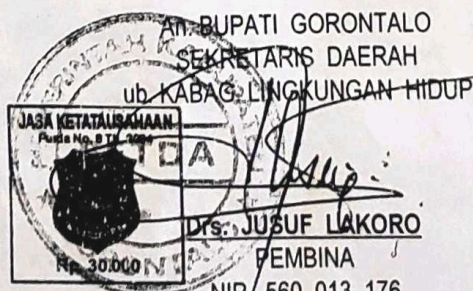 An. BUPATI GORONTALO
SEKRETARIS DAERAH
ub. KABAG LINGKUNGAN HIDUP
JASA KETATAUSAHAAN
Perda No. 8 Th. 2004
Rp. 30.000
Drs. JUSUF LAKORO
PEMBINA
NIP. 560 013 176